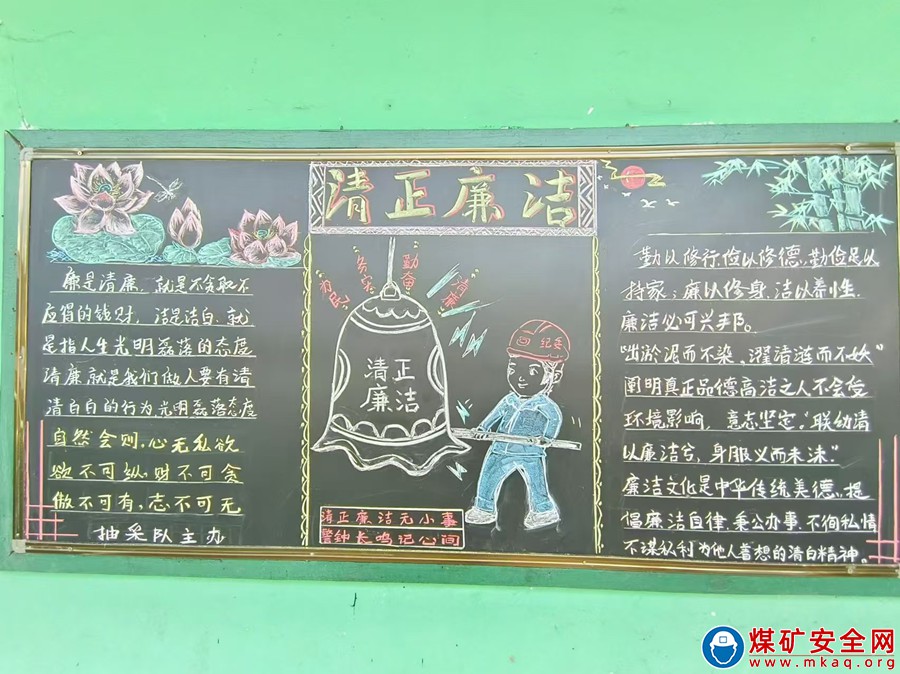 清正廉洁
廉是清廉，就是不贪取不
应得的钱财，洁是洁白，就
是指人生光明磊落的态度
清廉就是我们做人要有清
清白白的行为光明磊落态度
自然会则，心无私欲
欲不可纵，财不可贪
傲不可有，志不可无
抽采队主办
为民
务实
勤奋
清廉
清正
廉洁
纪委
清正廉洁无小事
警钟长鸣记心间
勤以修行，俭以修德，勤俭足以
持家；廉以修身，洁以养性，
廉洁必可兴邦。
“出淤泥而不染，濯清涟而不妖”
阐明真正品德高洁之人不会受
环境影响，意志坚定，“朕幼清
以廉洁兮，身服义而未沫”
廉洁文化是中华传统美德，提
倡廉洁自律，秉公办事，不徇私情
不谋私利为他人着想的清白精神。
煤矿安全网
www.mkaq.org